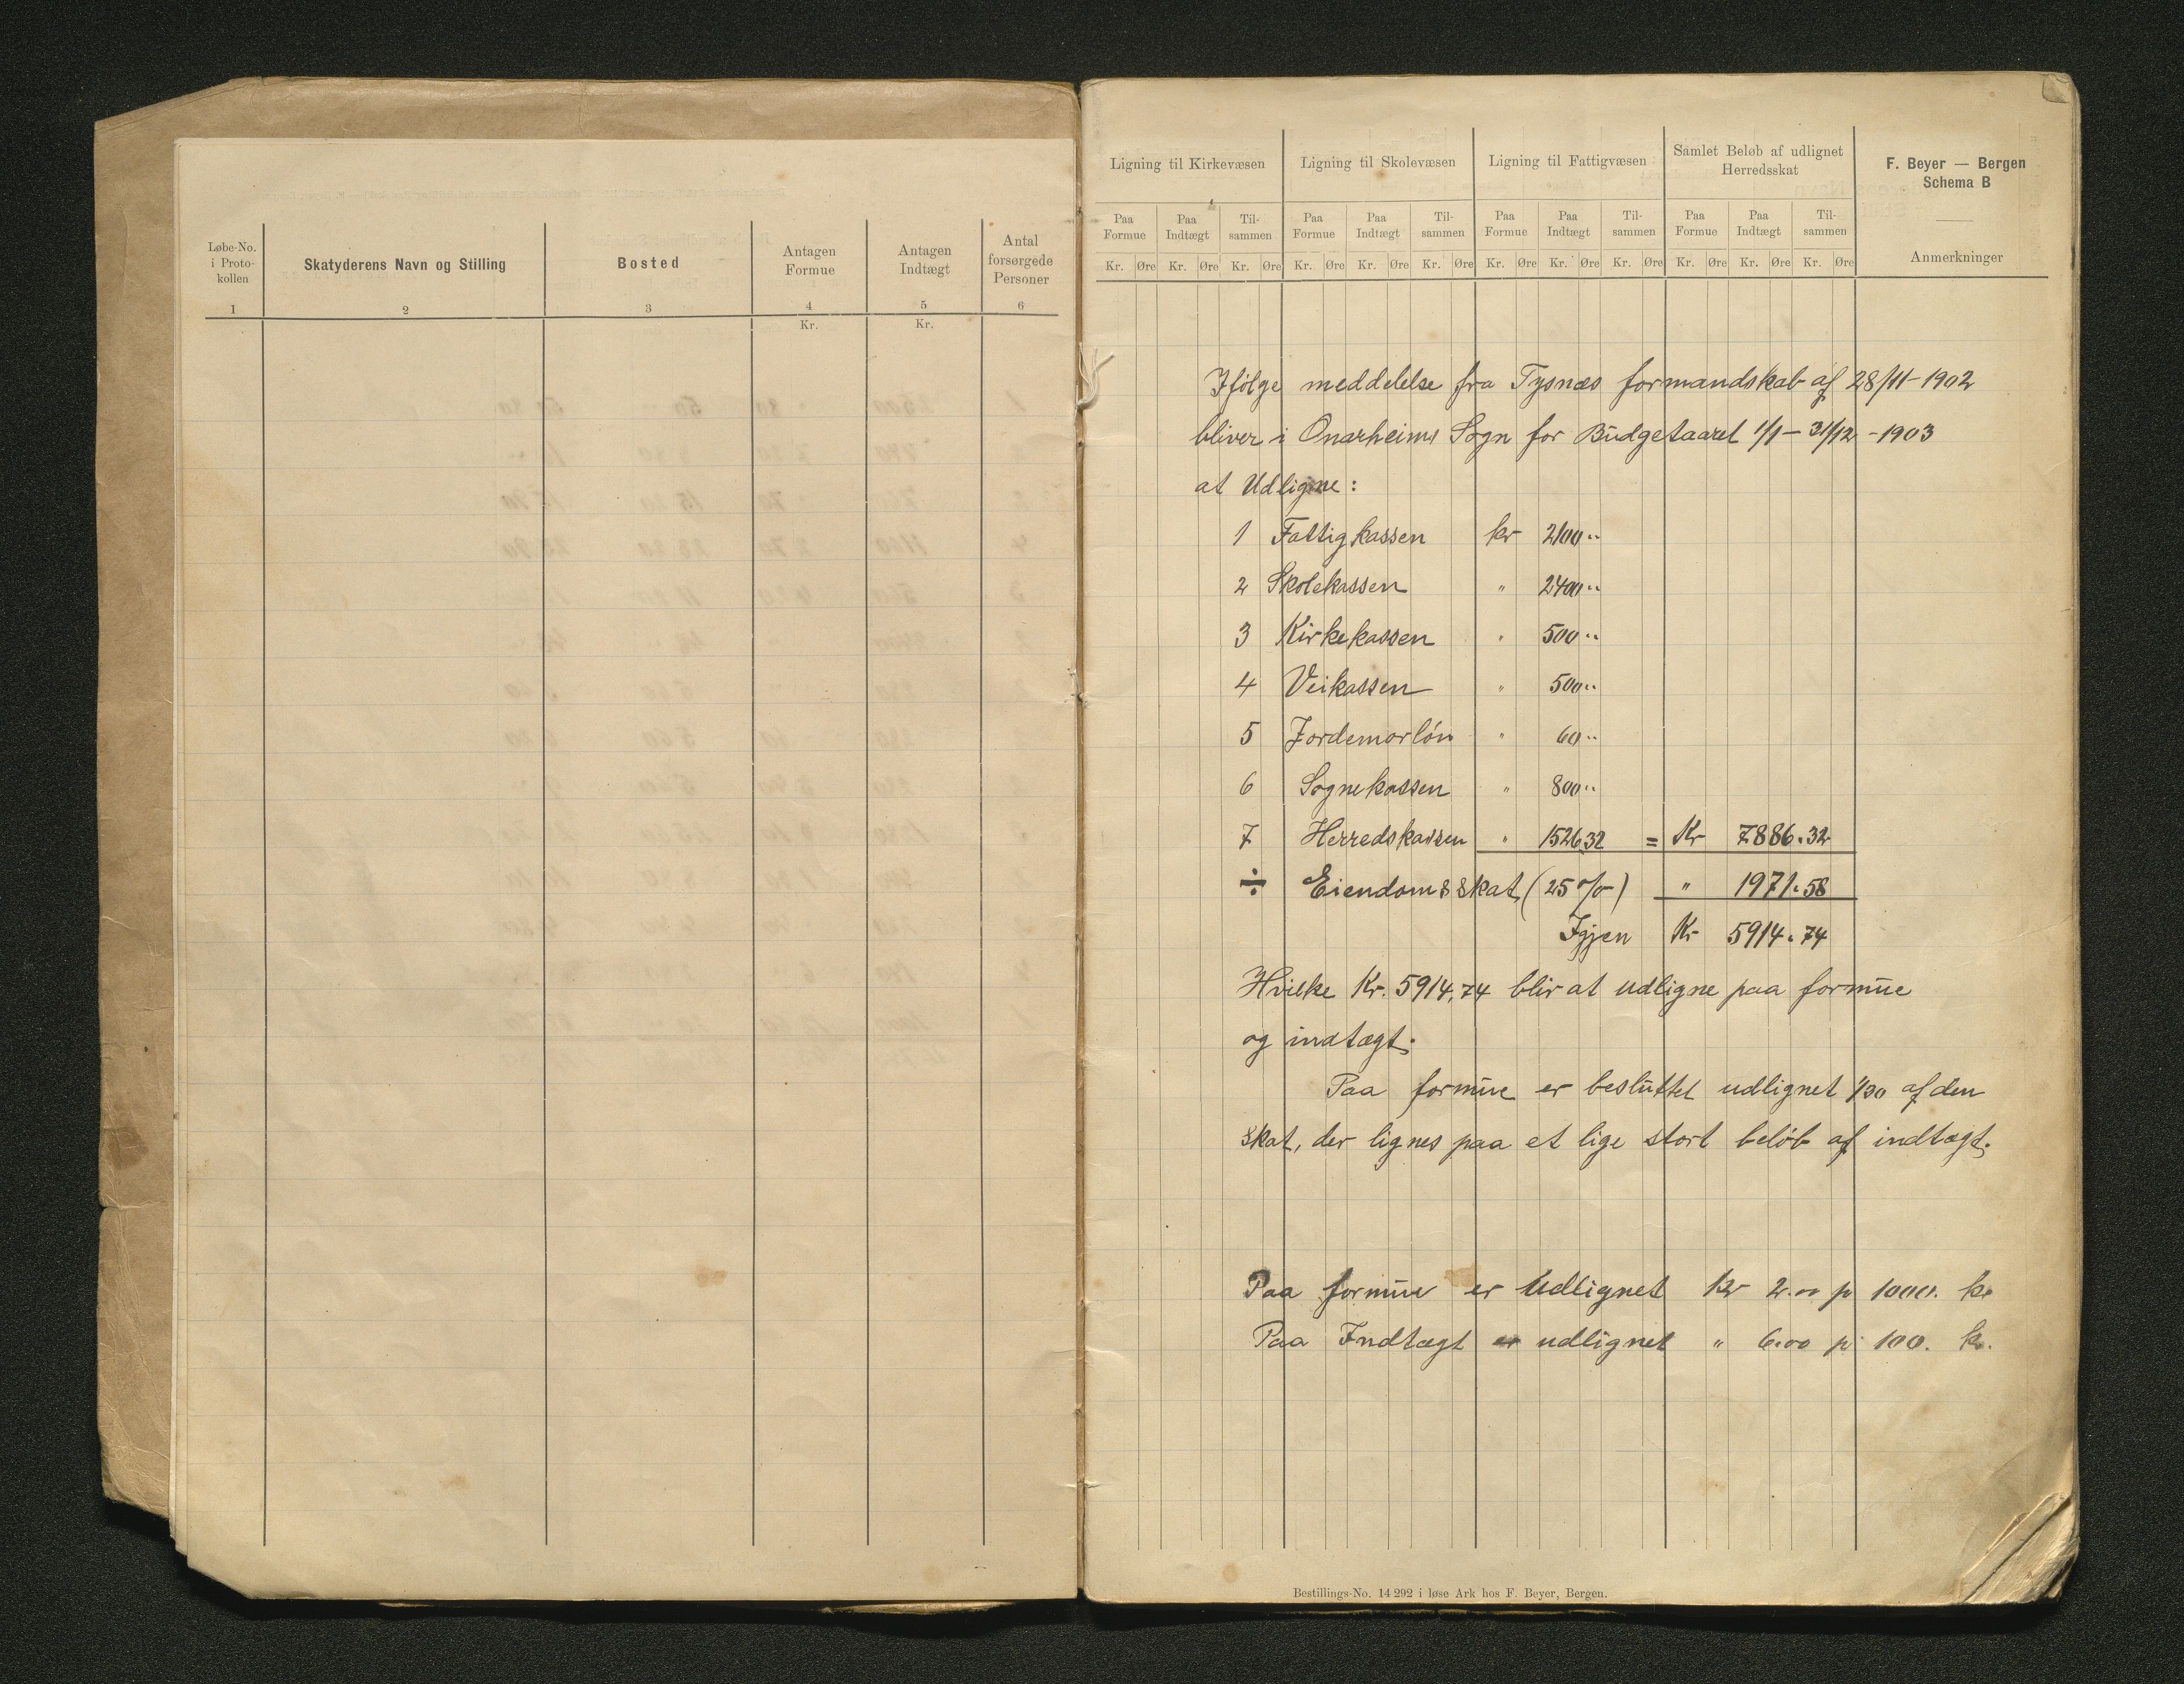 Løbe-No. i Proto-kollen
Skatyderens Navn og Stilling
Bosted
Antagen Formue
Antagen Indtægt
Antal forsørgede Personer
1 2 3 4 5 6
Kr. Kr.
Ligning til Kirkevæsen
Ligning til Skolevæsen
Ligning til Fattigvæsen
Samlet Beløb af udlignet Herredsskat
F. Beyer — Bergen
Schema B
Paa Formue Paa Indtægt Til-sammen Paa Formue Paa Indtægt Til-sammen Paa Formue Paa Indtægt Til-sammen Paa Formue Paa Indtægt Til-sammen
Anmerkninger
Kr. Øre Kr. Øre Kr. Øre Kr. Øre Kr. Øre Kr. Øre Kr. Øre Kr. Øre Kr. Øre Kr. Øre Kr. Øre Kr. Øre
Ifölge meddelelse fra Tysnæs formandskab af 28/11-1902
bliver i Onarheims Sogn for Budgetaaret 1/1 - 31/12 - 1903
at Udligne:
1 Fattigkassen kr 2100 ..
2 Skolekassen " 2400 ..
3 Kirkekassen " 500 ..
4 Veikassen " 500 ..
5 Jordemorlön " 60 ..
6 Sognekassen " 800 ..
7 Herredskassen " 1526.32 = Kr 7886.32
÷ Eiendomsskat (25 %) " 1971.58
Igjen Kr 5914.74
Hvilke Kr. 5914,74 blir at udligne paa formue
og indtægt.
Paa formue er besluttet udlignet 1/30 af den
skat, der lignes paa et lige stort belöb af indtægt.
Paa formue er Udlignet Kr 2.00 p 1000. kr
Paa Indtægt er udlignet " 6.00 p 100. kr.
Bestillings-No. 14 292 i løse Ark hos F. Beyer, Bergen.